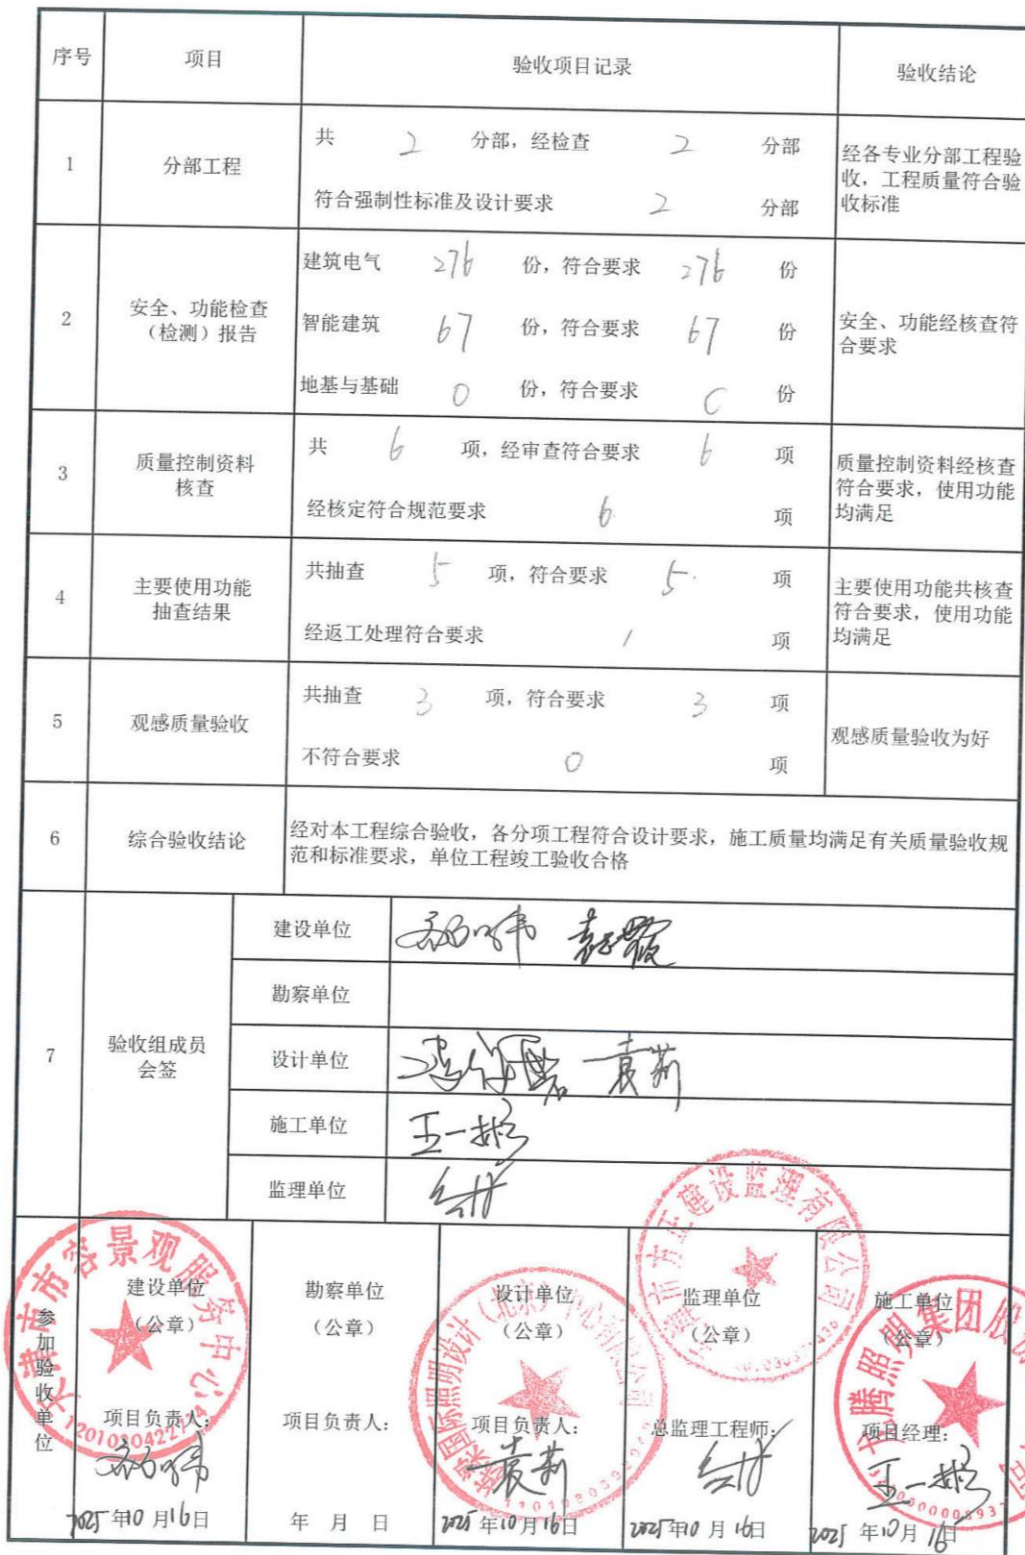 序号 项目 验收项目记录 验收结论
1 分部工程
共 2 分部，经检查 2 分部
符合强制性标准及设计要求 2 分部
经各专业分部工程验
收，工程质量符合验
收标准
2 安全、功能检查
（检测）报告
建筑电气 276 份，符合要求 276 份
智能建筑 67 份，符合要求 67 份
地基与基础 0 份，符合要求 0 份
安全、功能经核查符
合要求
3 质量控制资料
核查
共 6 项，经审查符合要求 6 项
经核定符合规范要求 6 项
质量控制资料经核查
符合要求，使用功能
均满足
4 主要使用功能
抽查结果
共抽查 5 项，符合要求 5 项
经返工处理符合要求 / 项
主要使用功能共核查
符合要求，使用功能
均满足
5 观感质量验收
共抽查 3 项，符合要求 3 项
不符合要求 0 项
观感质量验收为好
6 综合验收结论
经对本工程综合验收，各分项工程符合设计要求，施工质量均满足有关质量验收规
范和标准要求，单位工程竣工验收合格
7 验收组成员
会签
建设单位
勘察单位
设计单位 袁莉
施工单位 王一彬
监理单位
参加验收单位
建设单位
（公章）
项目负责人：
2025年10月16日
天津市市容景观服务中心
勘察单位
（公章）
项目负责人：
年 月 日
设计单位
（公章）
项目负责人：
袁莉
2025年10月16日
国际照明设计（北京）中心有限公司
监理单位
（公章）
总监理工程师：
2025年10月16日
方正建设监理有限公司
施工单位
（公章）
项目经理：
王一彬
2025年10月16日
腾照明集团股